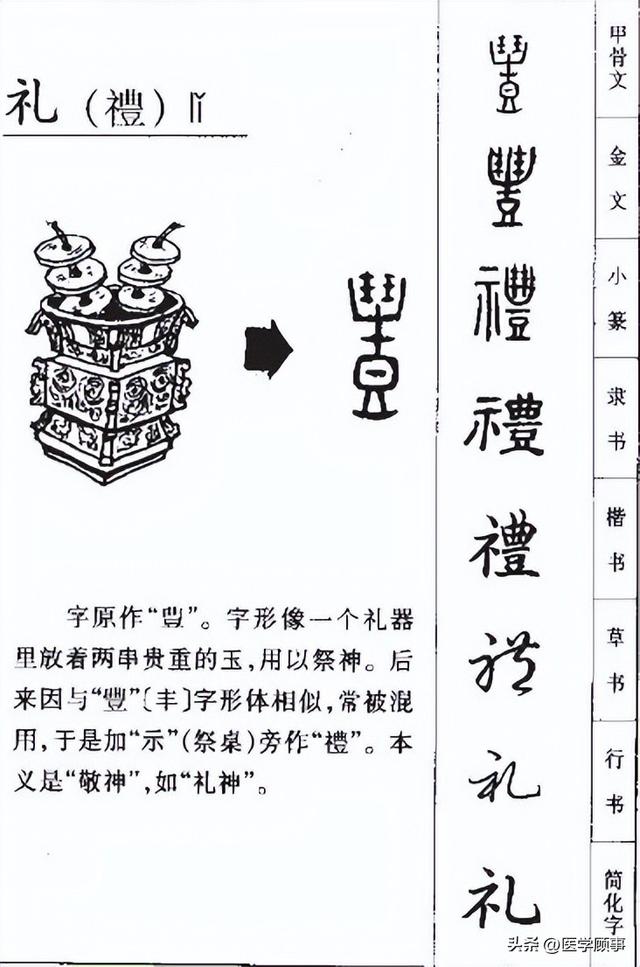 礼（禮）lǐ
字原作“豊”。字形像一个礼器
里放着两串贵重的玉，用以祭神。后
来因与“豐”〔丰〕字形体相似，常被混
用，于是加“示”（祭桌）旁作“禮”。本
义是“敬神”，如“礼神”。
豊
豊 甲骨文
豊 金文
禮 小篆
禮 隶书
禮 楷书
礼 草书
礼 行书
礼 简化字
头条 @医学顾事